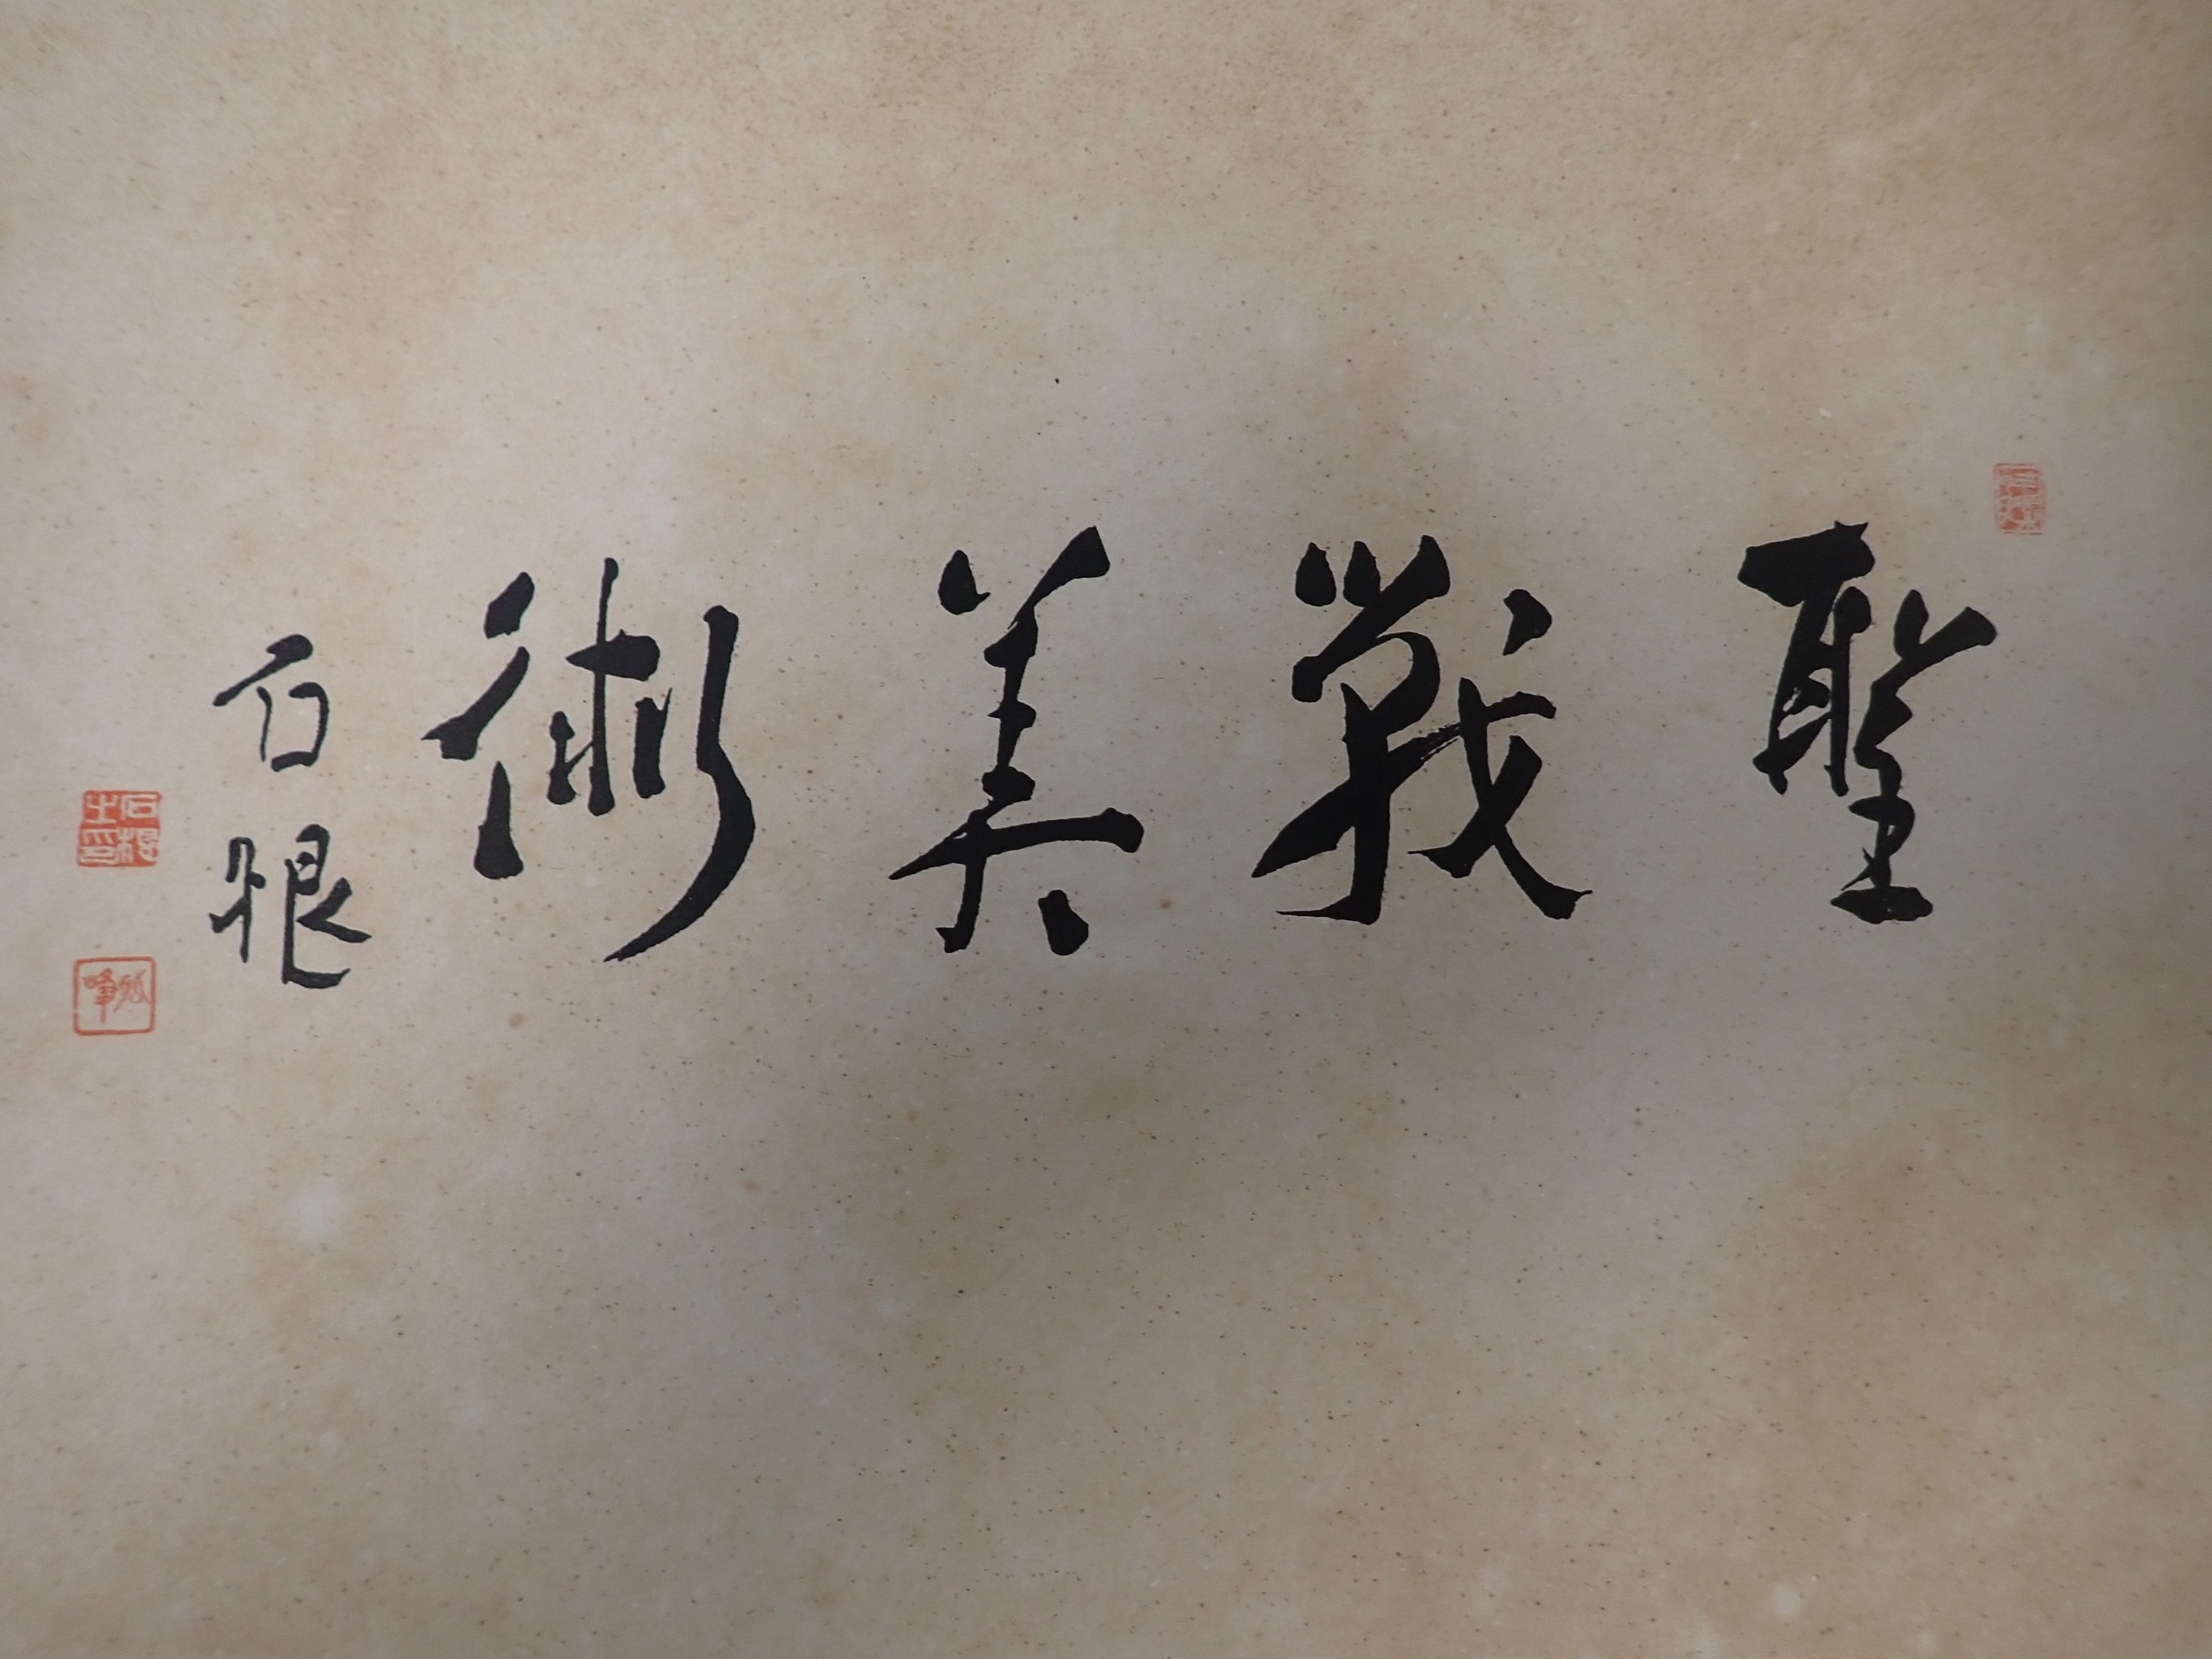 聖戰美術
石根
石根之印